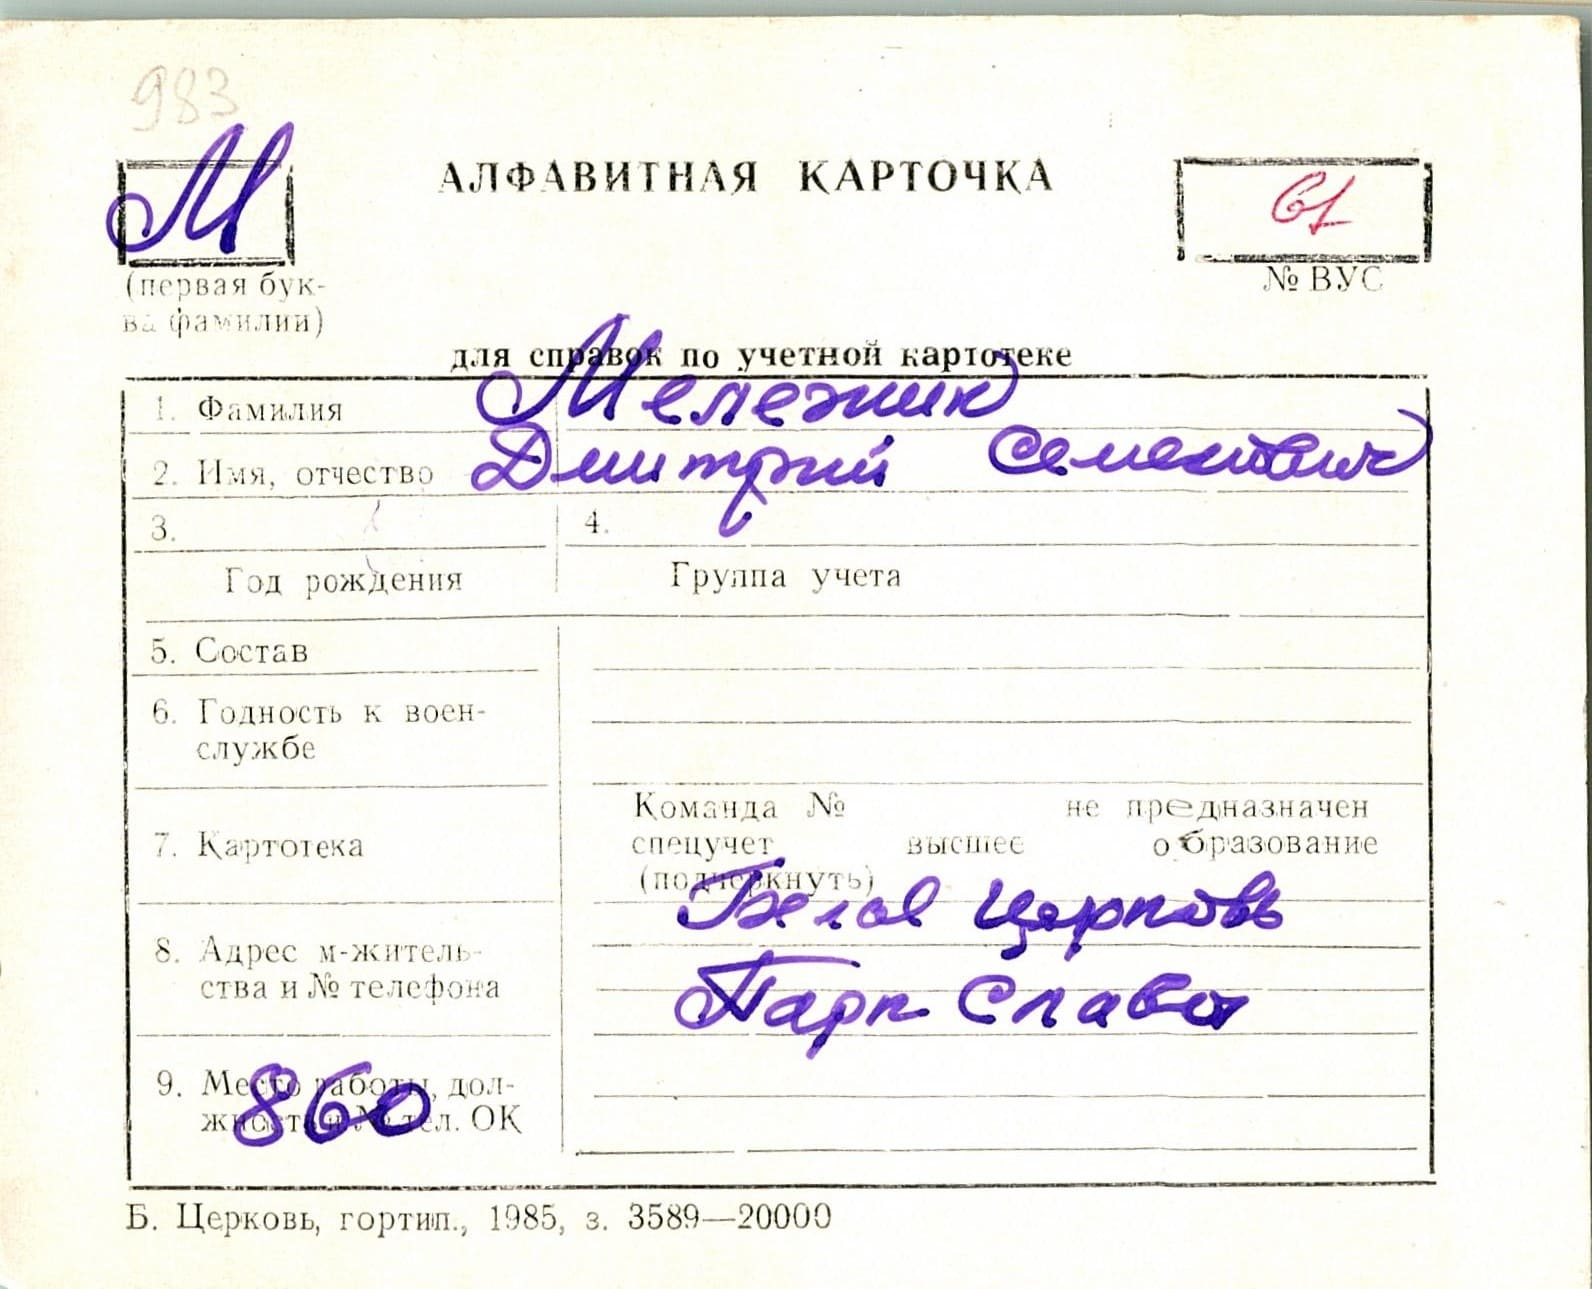 983
М
АЛФАВИТНАЯ КАРТОЧКА
61
(первая бук-
ва фамилии)
№ ВУС
для справок по учетной картотеке
1. Фамилия Мележик
2. Имя, отчество Дмитрий Семенович
3. 4.
Год рождения Группа учета
5. Состав
6. Годность к воен-
службе
7. Картотека
Команда № не предназначен
спецучет высшее образование
(подчеркнуть)
8. Адрес м-житель-
ства и № телефона
Белая Церковь
Парк Славы
9. Место работы, дол-
жность и № тел. ОК
860
Б. Церковь, гортип., 1985, з. 3589—20000